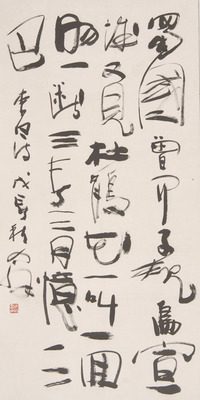 蜀國曾聞子規鳥宣
城又見杜鵑花一叫一回
腸一斷三春三月憶三
巴
李白詩戊辰秋